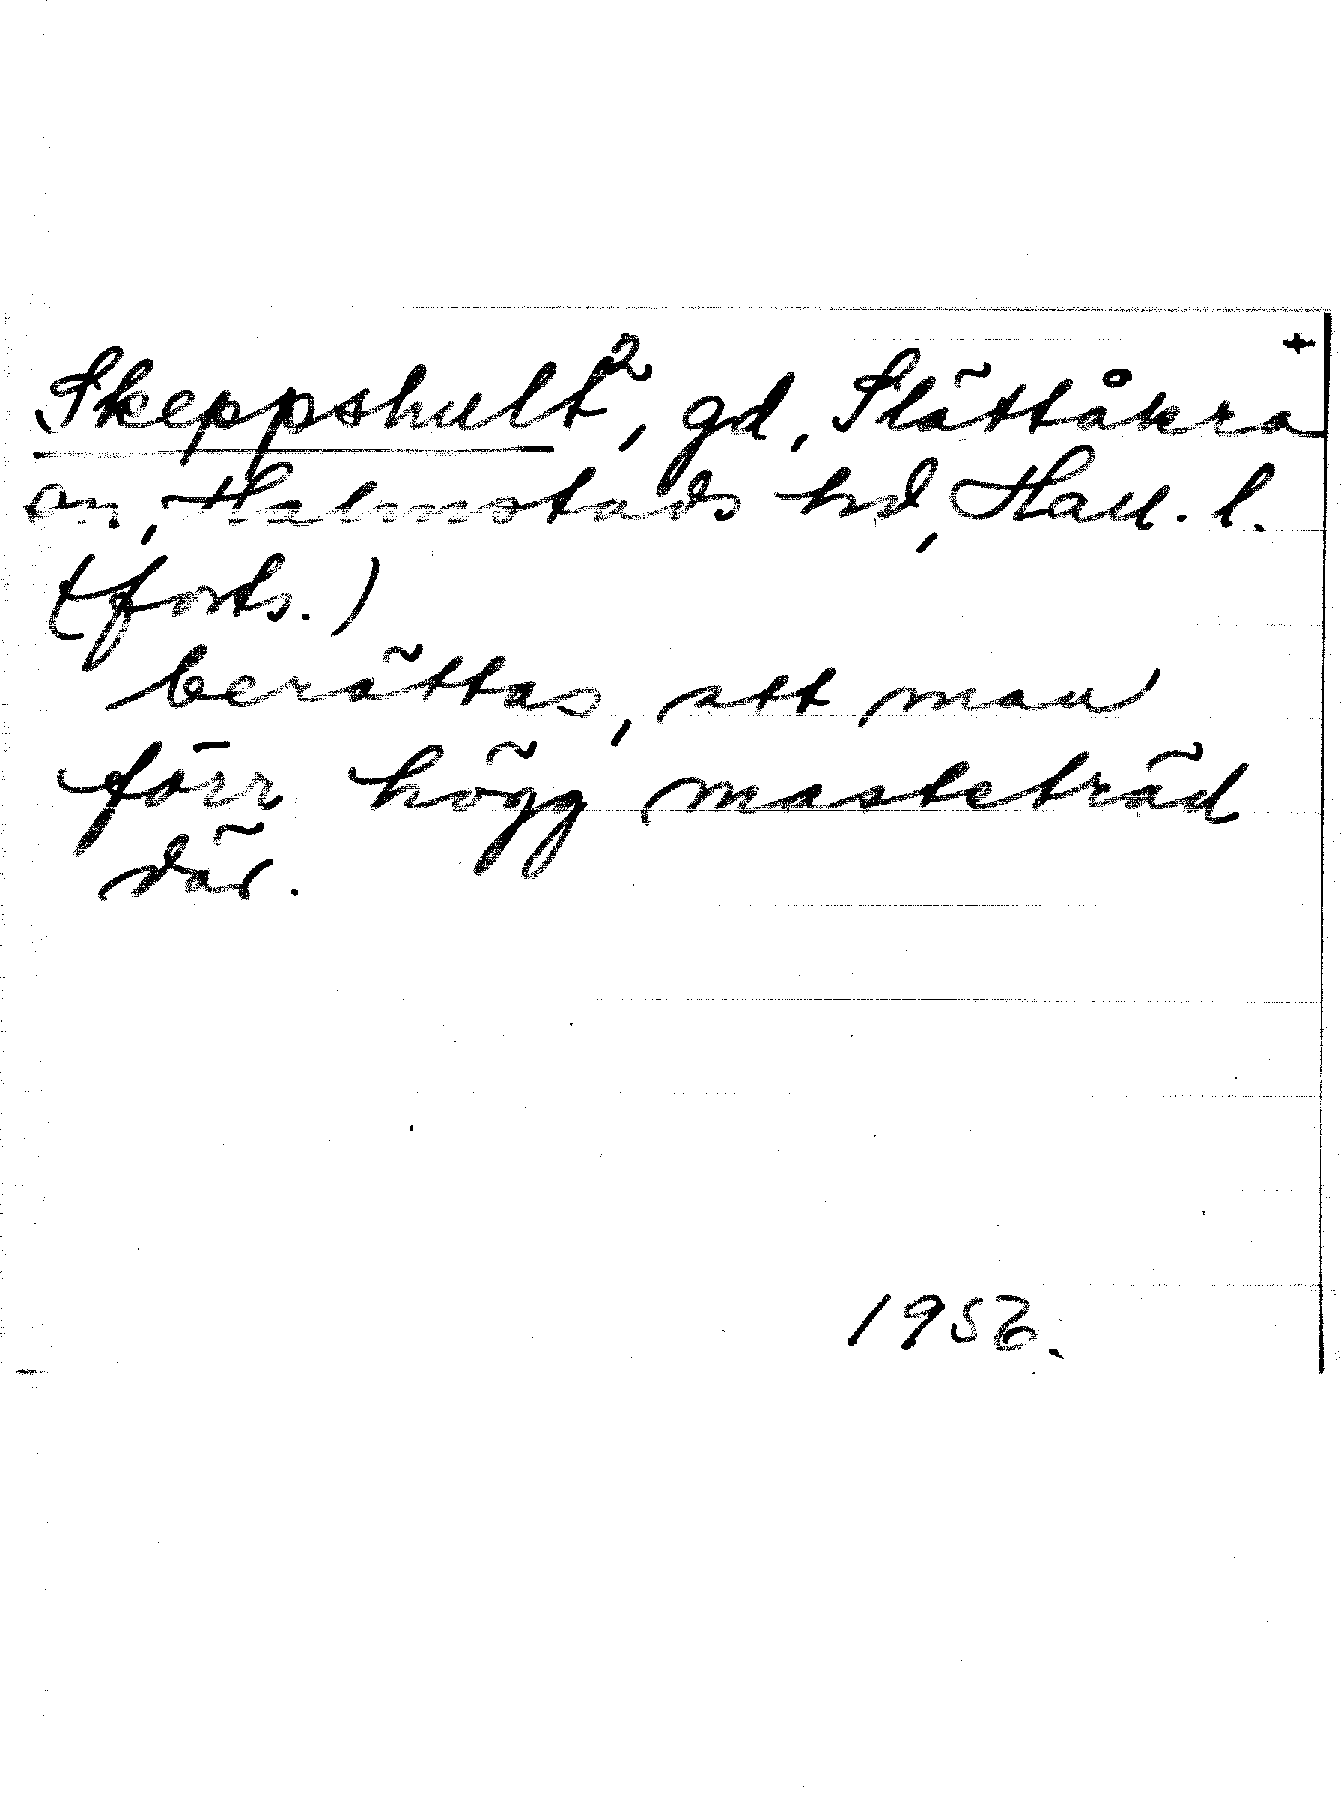 +
Skeppshult², gd, Slättåkra
sn, Halmstads hd, Hall. l.
(forts.)
berättas, att man
förr högg masteträd
där.
1956.